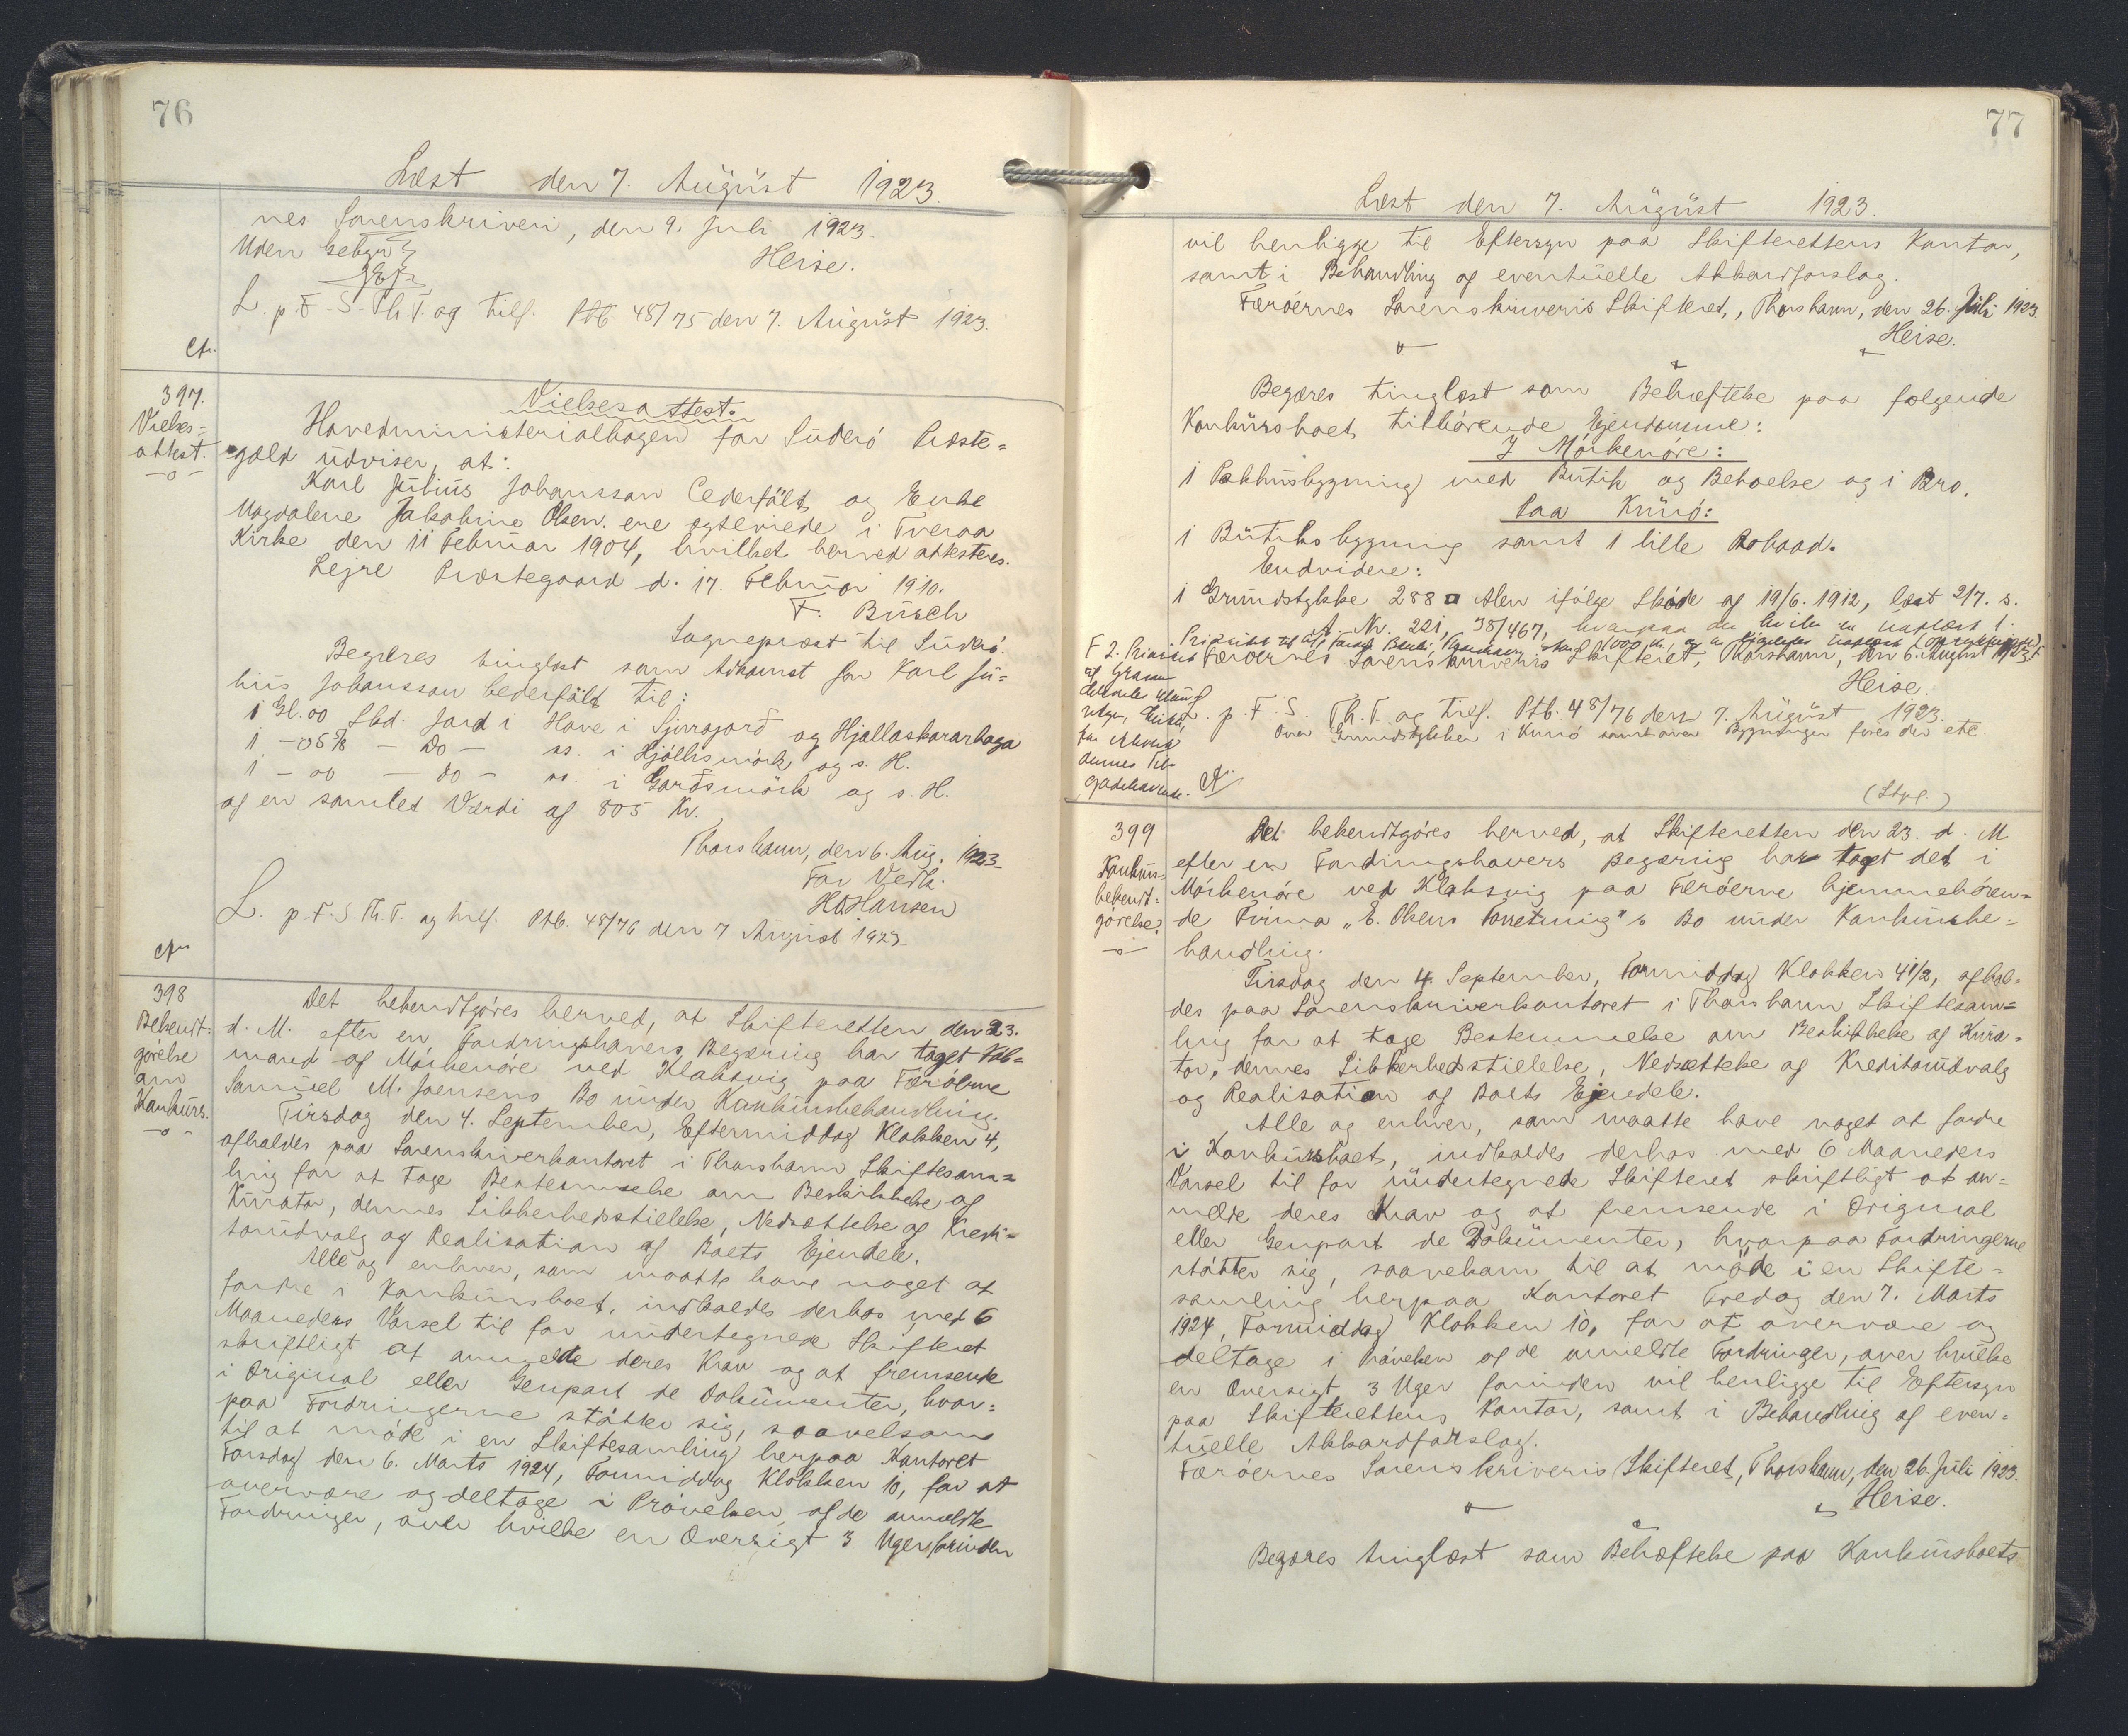 76
Læst den 7. August 1923.
nes Sorenskriveri, den 9. Juli 1923.
Uden Gebyr
Heise.
L. p. F. S. Th. T. og tilf. Ptb 48/75 den 7. August 1923.
397.
Vielses=
attest.
Vielsesattest.
Hovedministerialbogen for Suderø Præste=
gæld udviser, at:
Karl Julius Johansson Cederfält og Enke
Magdalene Jakobine Olsen. ere ægteviede i Tveraa
Kirke den 11 Februar 1904, hvilket herved attesteres.
Lejre Præstegaard d. 17. Februar 1910.
F. Büsch
Sognepræst til Suderø.
Begæres tinglæst som Adkomst for Karl Ju=
lius Johansson Cederfält til:
1 Gl. 00 Skd. Jord i Have i Sjovrgjord og Hjallaskararhaga
1 - 05⅞ - Do - ss. i Hjöllismörk og s. H.
1 - 00 - do - ss. i Gardsmörk og s. H.
af en samlet Værdi af 805 Kr.
Thorshavn, den 6. Aug. 1923
For Vedk.
H. Hansen
L. p. F. S. Th. T. og tilf. Ptb. 48/76 den 7 August 1923.
398
Bekendt=
gørelse
om
Konkurs.
Det bekendtgøres herved, at Skifteretten den 23.
d. M. efter en Fordringshavers Begæring har taget Køb=
mand af Mörkenöre ved Klaksvig paa Færöerne
Samuel M. Joensens Bo under Konkursbehandling.
Tirsdag den 4. September, Eftermiddag Klokken 4,
afholdes paa Sorenskriverkontoret i Thorshavn Skiftesam=
ling for at tage Bestemmelse om Beskikkelse af
Kurator, dennes Sikkerhedsstillelse, Nedsættelse af Kredi=
torudvalg og Realisation af Boets Ejendele.
Alle og enhver, som maatte have noget at
fordre i Konkursboet, indkaldes derhos med 6
Maaneders Varsel til for undertegnede Skifteret
skriftligt at anmelde deres Krav og at fremsende
i Original eller Genpart de Dokumenter, hvor=
paa Fordringerne støtter sig, saavelsom
til at møde i en Skiftesamling herpaa Kontoret
Torsdag den 6. Marts 1924, Formiddag Klokken 10, for at
overvære og deltage i Prøvelsen af de anmeldte
Fordringer, over hvilke en Oversigt 3 Uger forinden
77
Læst den 7. August 1923.
vil henligge til Eftersyn paa Skifterettens Kontor,
samt i Behandling af eventuelle Akkordforslag.
Færöernes Sorenskriveris Skifteret, Thorshavn, den 26. Juli 1923.
Heise.
Begæres tinglæst som Behæftelse paa følgende
Konkursboet tilhørende Ejendomme:
I Mörkenöre:
1 Pakhusbygning med Butik og Beboelse og 1 Bro.
Paa Kunö:
1 Butiksbygning samt 1 lille Bohaad.
Endvidere:
1 Grundstykke 288 □ Alen ifølge Skøde af 19/6. 1912, læst 2/7. s.
A. Nr. 221, 38/467, hvorpaa der
Færöernes Sorenskriveris Skifteret, Thorshavn, den 6. August 1923
Heise.
L. p. F. S. Th. T. og tilf. Ptb. 48/76 den 7. August 1923.
over Grundstykket i Kunö samt over Bygninger føres der ete.
(Stpl.)
399
Konkurs=
bekendt=
gørelse.
Det bekendtgøres herved, at Skifteretten den 23. d. M
efter en Fordringshavers Begæring har taget det i
Mörkenöre ved Klaksvig paa Færöerne hjemmehøren=
de Firma "E. Olsens Forretning"s Bo under Konkursbe=
handling.
Tirsdag den 4. September, Formiddag Klokken 4½, afhol=
des paa Sorenskriverkontoret i Thorshavn Skiftesam=
ling for at tage Bestemmelse om Beskikkelse af Kura=
tor, dennes Sikkerhedsstillelse, Nedsættelse af Kreditorudvalg
og Realisation af Boets Ejendele.
Alle og enhver, som maatte have noget at fordre
i Konkursboet, indkaldes derhos med 6 Maaneders
Varsel til for undertegnede Skifteret skriftligt at an=
melde deres Krav og at fremsende i Original
eller Genpart de Dokumenter, hvorpaa Fordringerne
støtter sig, saavelsom til at møde i en Skifte=
samling herpaa Kontoret Fredag den 7. Marts
1924, Formiddag Klokken 10, for at overvære og
deltage i Prøvelsen af de anmeldte Fordringer, over hvilke
en Oversigt 3 Uger forinden vil henligge til Eftersyn
paa Skifterettens Kontor, samt i Behandling af even=
tuelle Akkordforslag.
Færöernes Sorenskriveris Skifteret, Thorshavn, den 26. Juli 1923.
Heise.
Begæres tinglæst som Behæftelse paa Konkursboets